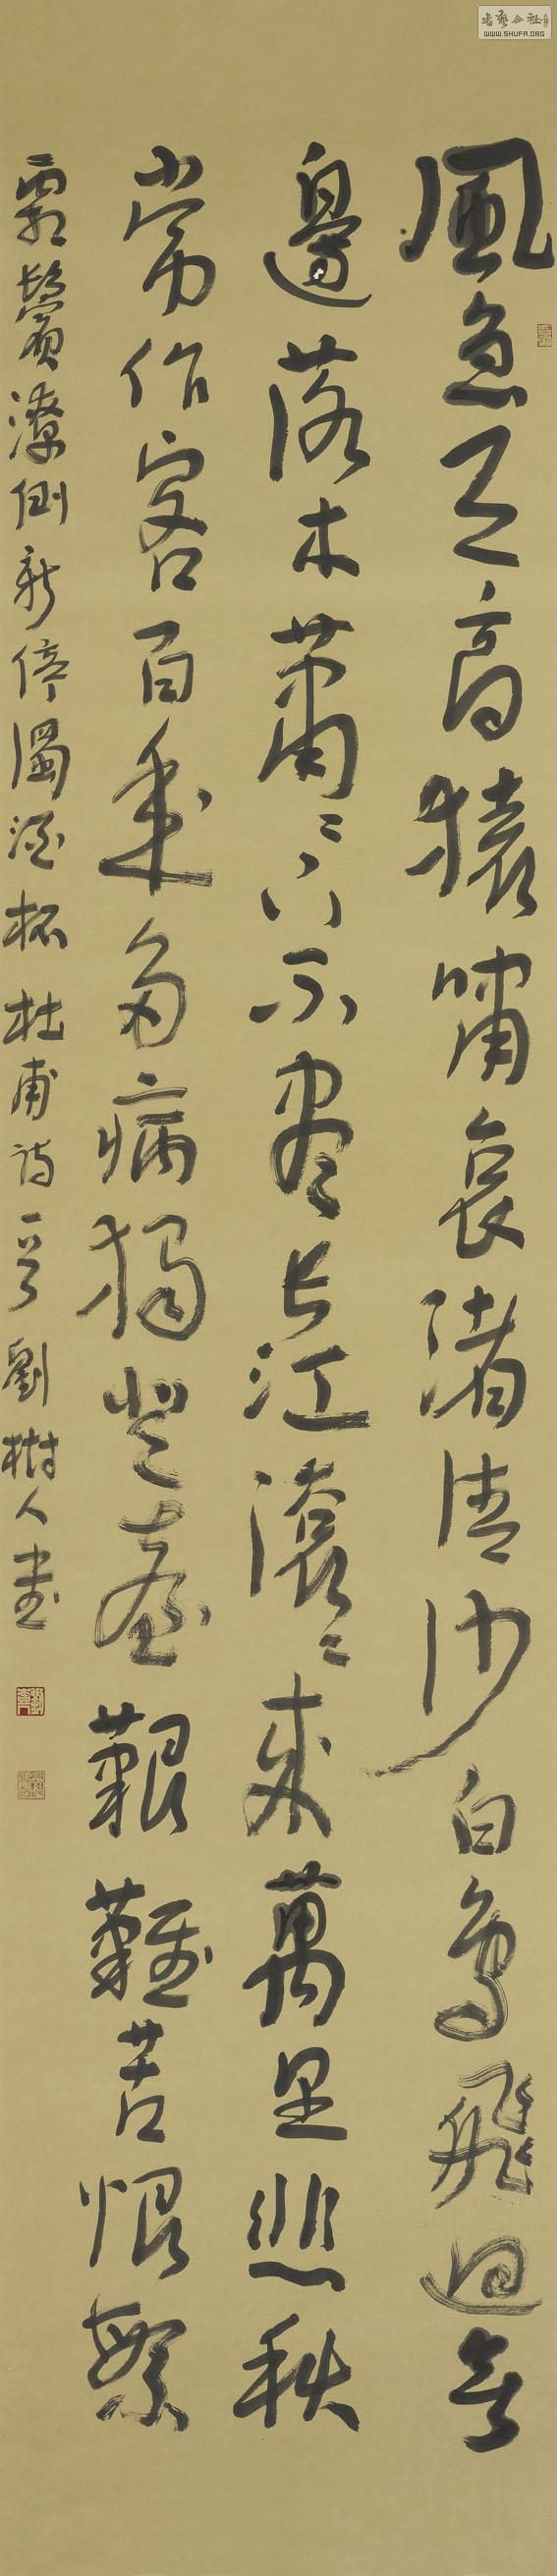 風急天高猿嘯哀渚清沙白鳥飛迴無
邊落木蕭〻下不盡長江滾〻來萬里悲秋
常作客百年多病獨登臺艱難苦恨繁
霜鬢潦倒新停濁酒杯 杜甫詩一首 劉樹人書
書艺公社
WWW.SHUFA.ORG